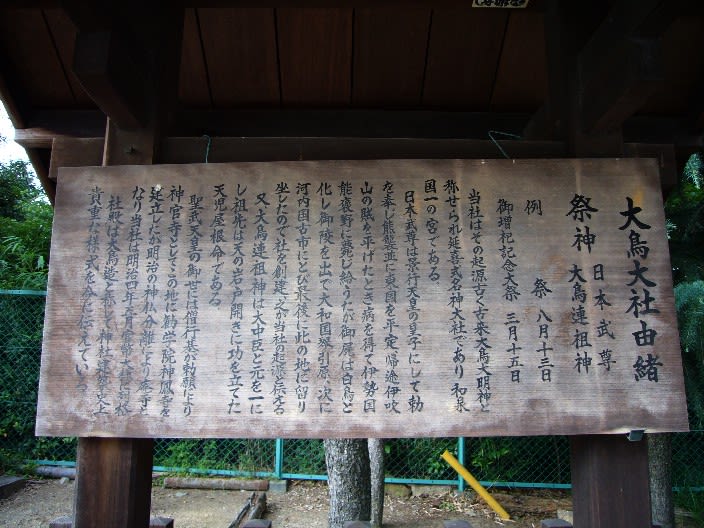 大鳥大社由緒
祭神 日本武尊
大鳥連祖神
例祭 八月十三日
御増祀記念大祭 三月十五日
当社はその起源古く古来大鳥大明神と
称せられ延喜式名神大社であり和泉
国一の宮である
日本武尊は景行天皇の皇子にして勅
を奉じ熊襲並に東国を平定帰途伊吹
山の賊を平げたとき病を得て伊勢国
能褒野に薨じ給うたが御屍は白鳥と
化し御陵を出で大和国琴引原、次に
河内国古市にとび最後に此の地に留り
坐したので社を創建之が当社起源と伝える
又大鳥連祖神は大中臣と元を一に
し祖先は天の岩戸開きに功を立てた
天児屋根命である
聖武天皇の御世には僧行基が勅願により
神宮寺としてこの地に勧学院神鳳寺を
建立したが明治の神仏分離により廃寺と
なり当社は明治四年五月官幣大社に列格
社殿は大鳥造と称して神社建築史上
貴重な様式を今に伝えている